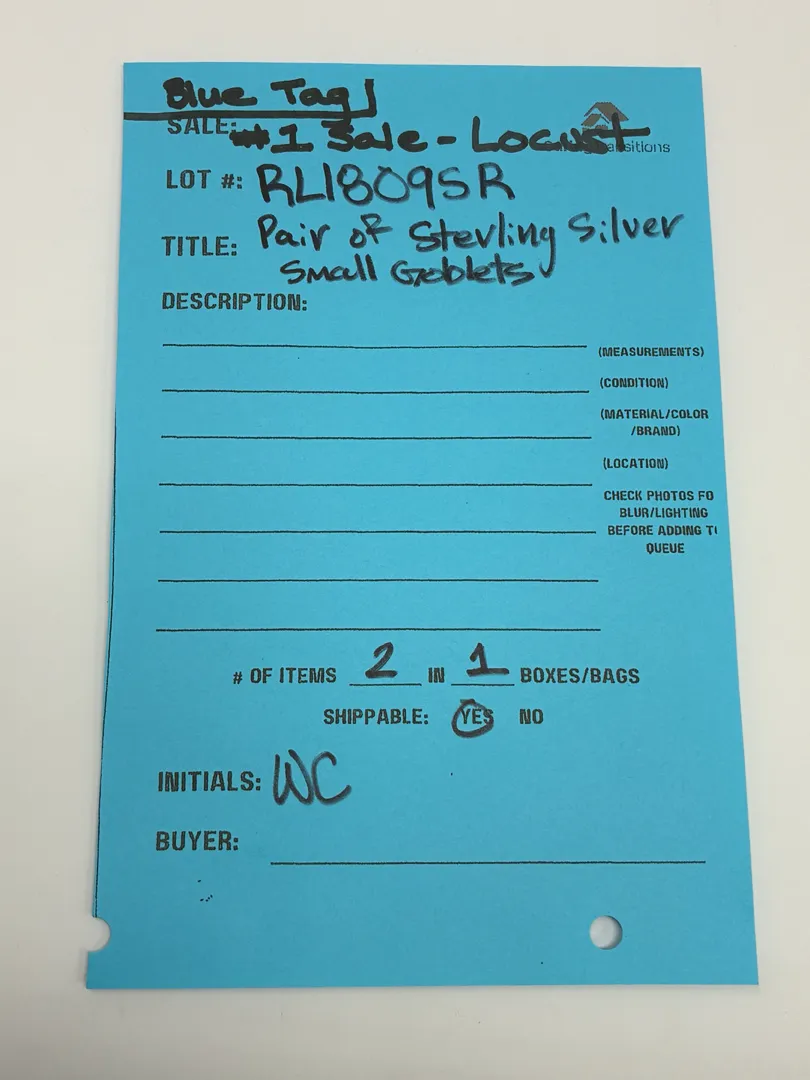 Blue Tag
SALE: #1 Sale - Locust
LOT #: RL1809SR
TITLE: Pair of Sterling Silver
Small Goblets
DESCRIPTION:
(MEASUREMENTS)
(CONDITION)
(MATERIAL/COLOR
/BRAND)
(LOCATION)
CHECK PHOTOS FO
BLUR/LIGHTING
BEFORE ADDING T
QUEUE
# OF ITEMS 2 IN 1 BOXES/BAGS
SHIPPABLE: YES NO
INITIALS: WC
BUYER: